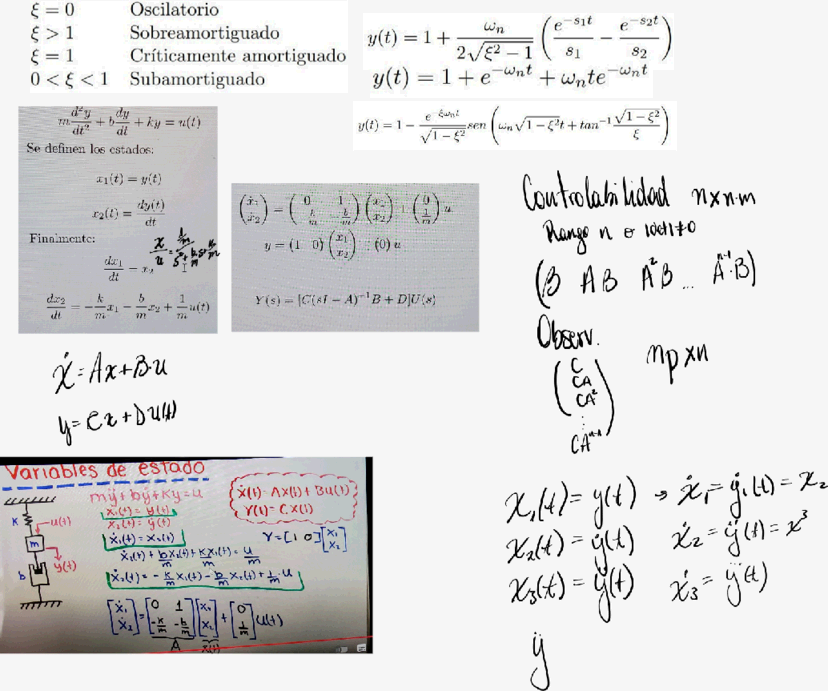 ξ = 0 Oscilatorio
ξ > 1 Sobreamortiguado
ξ = 1 Críticamente amortiguado
0 < ξ < 1 Subamortiguado
y(t) = 1 + ωn/(2√(ξ² − 1)) (e^(−s1t)/s1 − e^(−s2t)/s2)
y(t) = 1 + e^(−ωnt) + ωnte^(−ωnt)
y(t) = 1 − e^(−ξωnt)/√(1−ξ²) sen (ωn√(1 − ξ²)t + tan⁻¹ √(1 − ξ²)/ξ)
m d²y/dt² + b dy/dt + ky = u(t)
Se definen los estados:
x1(t) = y(t)
x2(t) = dy(t)/dt
Finalmente:
dx1/dt = x2
dx2/dt = −k/m x1 − b/m x2 + 1/m u(t)
(ẋ1; ẋ2) = (0 1; −k/m −b/m)(x1; x2) + (0; 1/m) u
y = (1 0)(x1; x2) + (0) u
Y(s) = [C(sI − A)⁻¹B + D]U(s)
Controlabilidad n×n·m
Rango n
(B AB A²B ... Aⁿ⁻¹·B)
Observ.
(C
CA
CA²
⋮
CAⁿ⁻¹)
np×n
ẋ = Ax+B·u
y = Cx+Du(t)
Variables de estado
mÿ + bẏ + Ky = u
x₁(t) = y(t)
x₂(t) = ẏ(t)
ẋ₁(t) = x₂(t)
ẋ₂(t) + b/m x₂(t) + K/m x₁(t) = u/m
ẋ₂(t) = −K/m x₁(t) − b/m x₂(t) + 1/m u
ẋ(t) = Ax(t) + Bu(t)
Y(t) = Cx(t)
Y = [1 0][x₁; x₂]
K
u(t)
m
y(t)
b
[ẋ₁; ẋ₂] = [0 1; −K/m −b/m][x₁; x₂] + [0; 1/m]u(t)
A x(t)
x₁(t) = y(t) → ẋ₁ = ẏ₁(t) = x₂
x₂(t) = ẏ(t) ẋ₂ = ÿ(t) = x³
x₃(t) = ÿ(t) ẋ₃ = y⃛(t)
ÿ